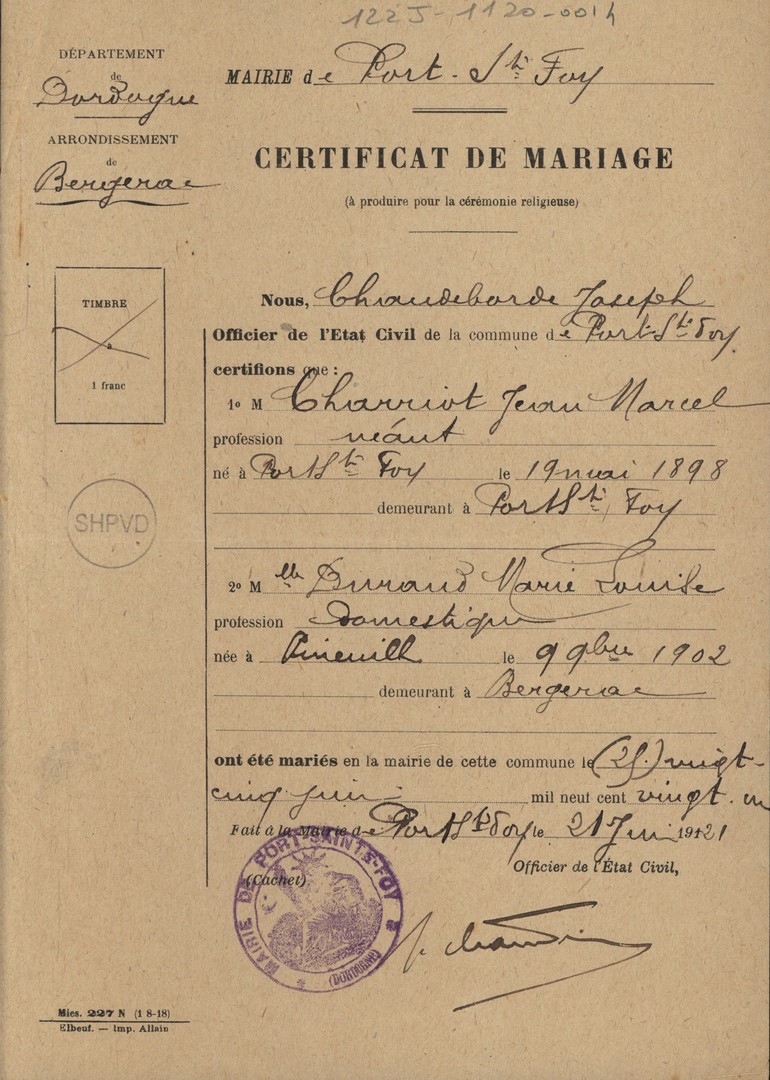 122J-1120-0014
DÉPARTEMENT
de
Dordogne
ARRONDISSEMENT
de
Bergerac
MAIRIE de Port-Ste Foy
CERTIFICAT DE MARIAGE
(à produire pour la cérémonie religieuse)
TIMBRE
1 franc
SHPVD
Nous, Chaudeborde Joseph
Officier de l'Etat Civil de la commune de Port-Ste Foy
certifions que :
1o M Charriot Jean Marcel
profession néant
né à Port Ste Foy le 19 mai 1898
demeurant à Port Ste Foy
2o Melle Durand Marie Louise
profession Domestique
née à Pineuilh le 9 9bre 1902
demeurant à Bergerac
ont été mariés en la mairie de cette commune le (25) vingt-
cinq juin mil neuf cent vingt-un
Fait à la Mairie de Port Ste Foy le 21 Juin 1921
Officier de l'État Civil,
(Cachet)
MAIRIE DE PORT-SAINTE-FOY
(DORDOGNE)
Mies. 227 N (1 8-18)
Elbeuf. — Imp. Allain